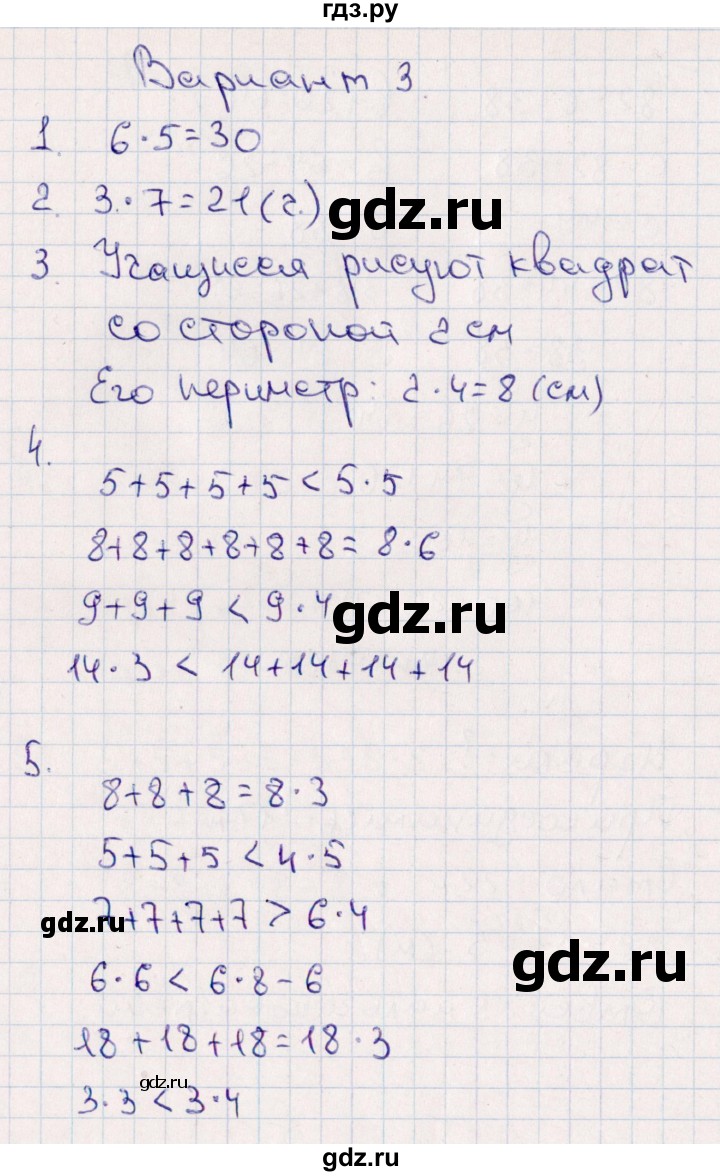 гдз.ру
Вариант 3.
1. 6·5=30
2. 3·7=21(г.)
gdz.ru
3. Учащиеся рисуют квадрат
со стороной 2 см
Его периметр: 2·4=8 (см)
4.
5+5+5+5<5·5
8+8+8+8+8+8=8·6
9+9+9<9·4
gdz.ru
14·3<14+14+14+14
5.
8+8+8=8·3
5+5+5<4·5
7+7+7+7>6·4
gdz.ru
6·6<6·8-6
gdz.ru
18+18+18=18·3
gdz.ru
3·3<3·4
gdz.ru